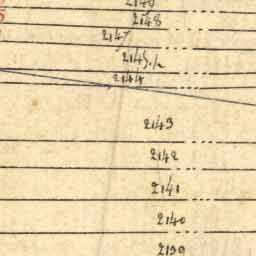 2149
2148
2147
2145.
2144
2143
2142
2141
2140
2139